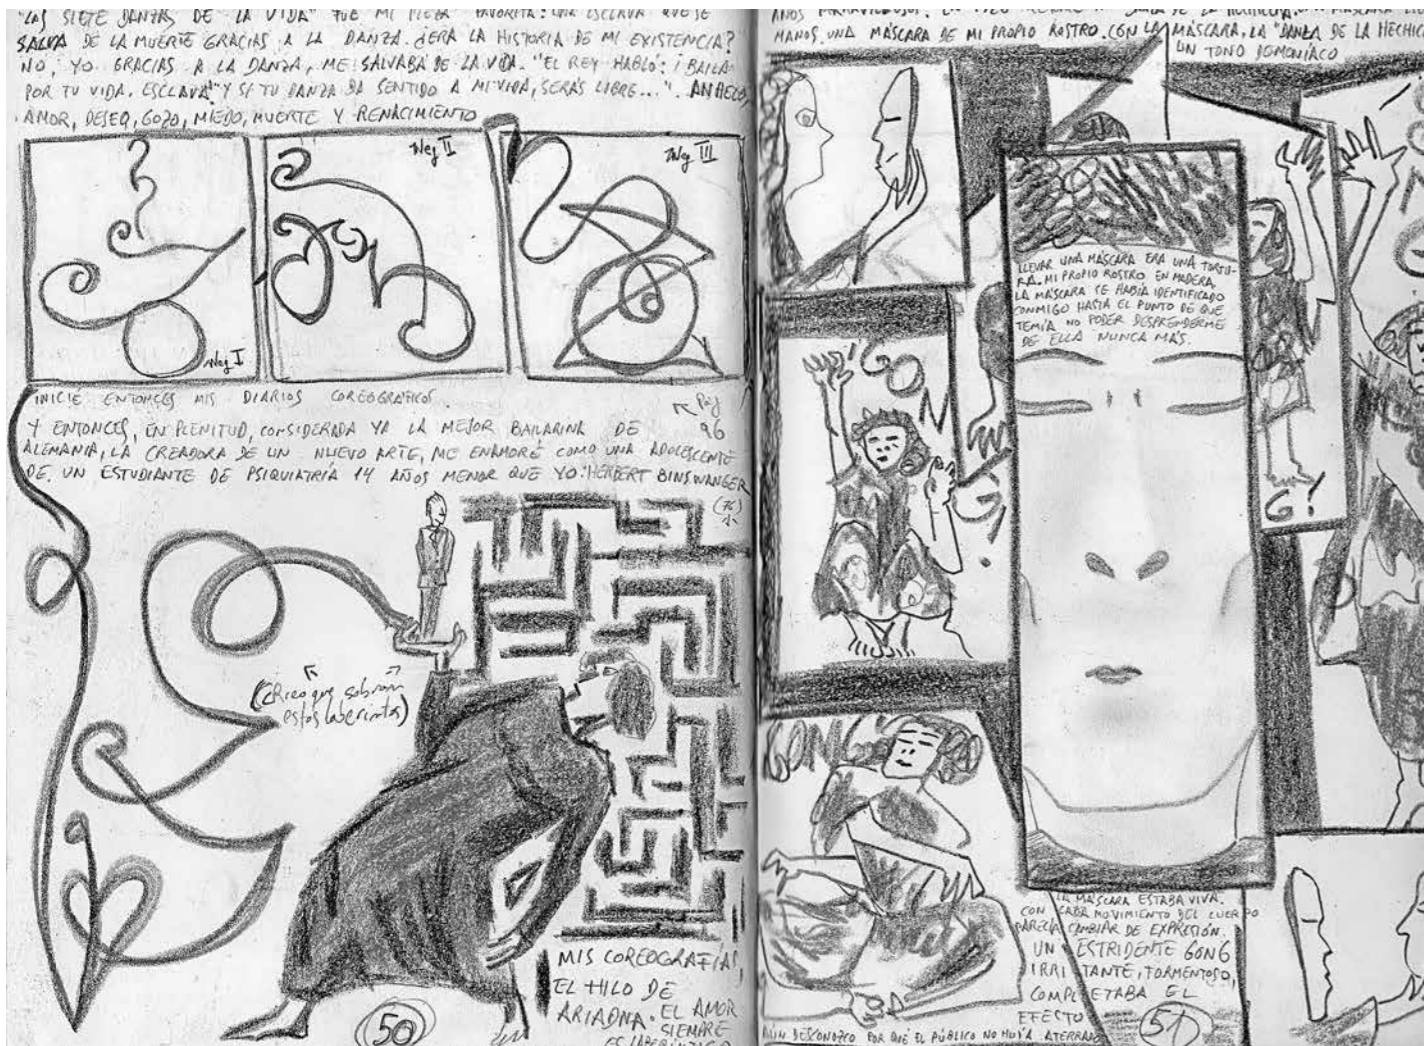 "LAS SIETE DANZAS DE LA VIDA" FUE MI PIEZA FAVORITA: UNA ESCLAVA QUE SE
SALVA DE LA MUERTE GRACIAS A LA DANZA. ¿ERA LA HISTORIA DE MI EXISTENCIA?
NO, YO GRACIAS A LA DANZA, ME SALVABA DE LA VIDA. "EL REY HABLÓ: ¡BAILA
POR TU VIDA, ESCLAVA! Y SI TU DANZA DA SENTIDO A MI VIDA, SERÁS LIBRE...". ANHELO,
AMOR, DESEO, GOZO, MIEDO, MUERTE Y RENACIMIENTO
Weg I
Weg II
Weg III
INICIÉ ENTONCES MIS DIARIOS COREOGRÁFICOS.
Pág
96
Y ENTONCES, EN PLENITUD, CONSIDERADA YA LA MEJOR BAILARINA DE
ALEMANIA, LA CREADORA DE UN NUEVO ARTE, ME ENAMORÉ COMO UNA ADOLESCENTE
DE UN ESTUDIANTE DE PSIQUIATRÍA 14 AÑOS MENOR QUE YO: HERBERT BINSWANGER
(Creo que sobran
estos laberintos)
MIS COREOGRAFÍAS,
EL HILO DE
ARIADNA. EL AMOR
SIEMPRE
ES LABERÍNTICO
50
MANOS. UNA MÁSCARA DE MI PROPIO ROSTRO. CON LA MÁSCARA, LA "DANZA DE LA HECHIC
UN TONO DEMONÍACO
LLEVAR UNA MÁSCARA ERA UNA TORTU-
RA. MI PROPIO ROSTRO EN MADERA.
LA MÁSCARA SE HABÍA IDENTIFICADO
CONMIGO HASTA EL PUNTO DE QUE
TEMÍA NO PODER DESPRENDERME
DE ELLA NUNCA MÁS.
¡GONG!
G!
ONG
LA MÁSCARA ESTABA VIVA.
CON CADA MOVIMIENTO DEL CUERPO
PARECÍA CAMBIAR DE EXPRESIÓN.
UN ESTRIDENTE GONG
IRRITANTE, TORMENTOSO,
COMPLETABA EL
EFECTO
AÚN DESCONOZCO POR QUÉ EL PÚBLICO NO HUÍA ATERRADO
51